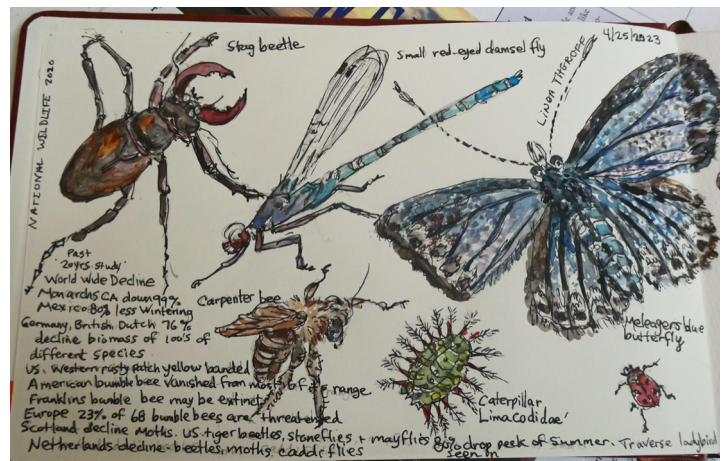 Stag beetle
Small red-eyed damsel fly
4/25/2023
LINDA THEROFF
NATIONAL WILDLIFE 2020
Past
'20yrs. study'
World Wide Decline
Monarchs CA down 99%
Mexico 80% less Wintering
Germany, British Dutch 76%
decline biomass of 100's of
different species
US. Western rusty patch yellow banded
American bumble bee vanished from most of its range
Franklins bumble bee may be extinct
Europe 23% of 68 bumble bees are threatened
Scotland decline Moths. US. tiger beetles, stoneflies + mayflies
drop peek of Summer.
Netherlands decline beetles, moths, caddiflies
seen in
Carpenter bee
Caterpillar
Limacodidae'
Meleagers blue
butterfly
Traverse ladybird